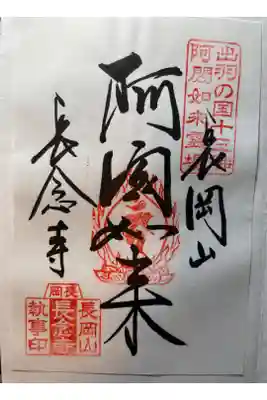 出羽の国十三佛
阿閦如来霊場
長岡山
阿閦如来
長念寺
長岡山
長念寺
執事印